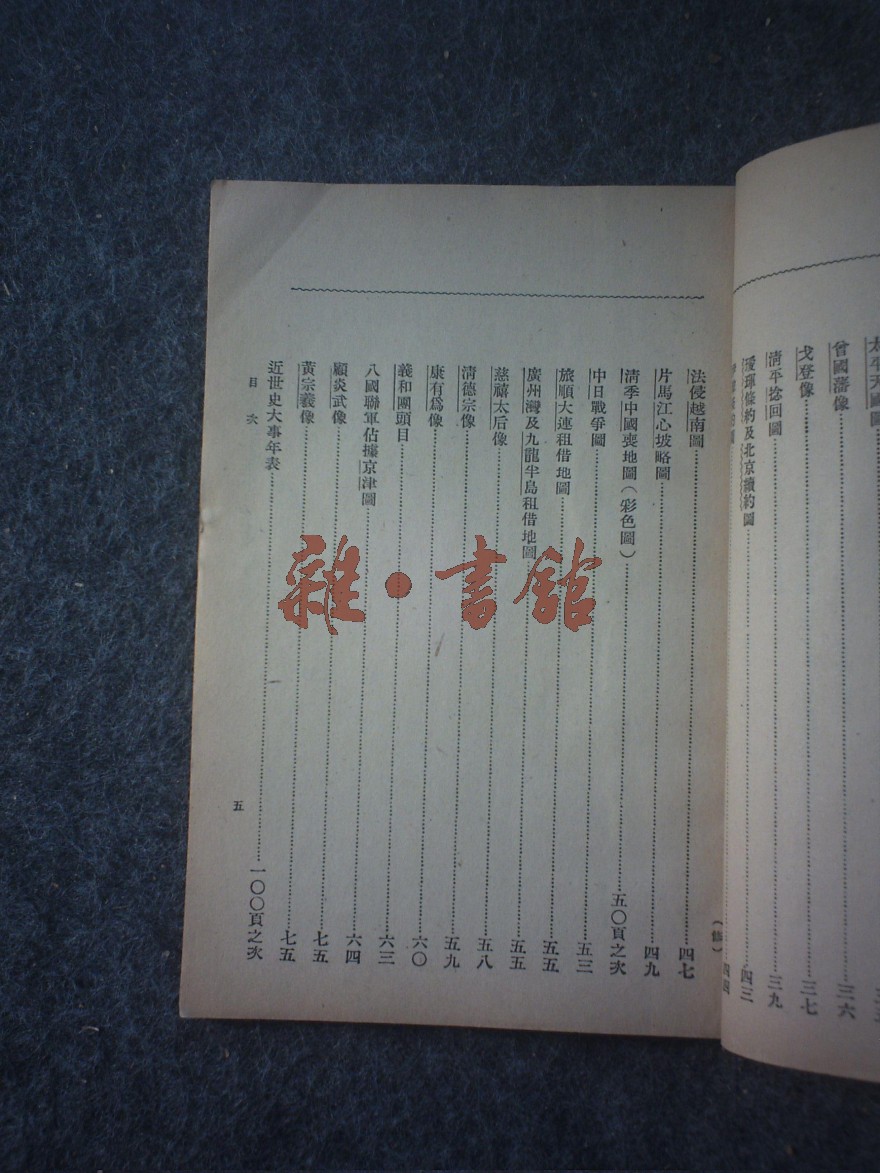 太平天國圖
曾國藩像……三六
戈登像……三七
清平捻回圖……三九
璦琿條約及北京續約圖……四三
法侵越南圖……四七
片馬江心坡略圖……四九
清季中國喪地圖(彩色圖)……五〇頁之次
中日戰爭圖……五三
旅順大連租借地圖……五五
廣州灣及九龍半島租借地圖……五五
慈禧太后像……五八
清德宗像……五九
康有爲像……六〇
義和團頭目……六三
八國聯軍佔據京津圖……六四
顧炎武像……七五
黃宗羲像……七五
近世史大事年表……一〇〇頁之次
目次
五
雜·書館